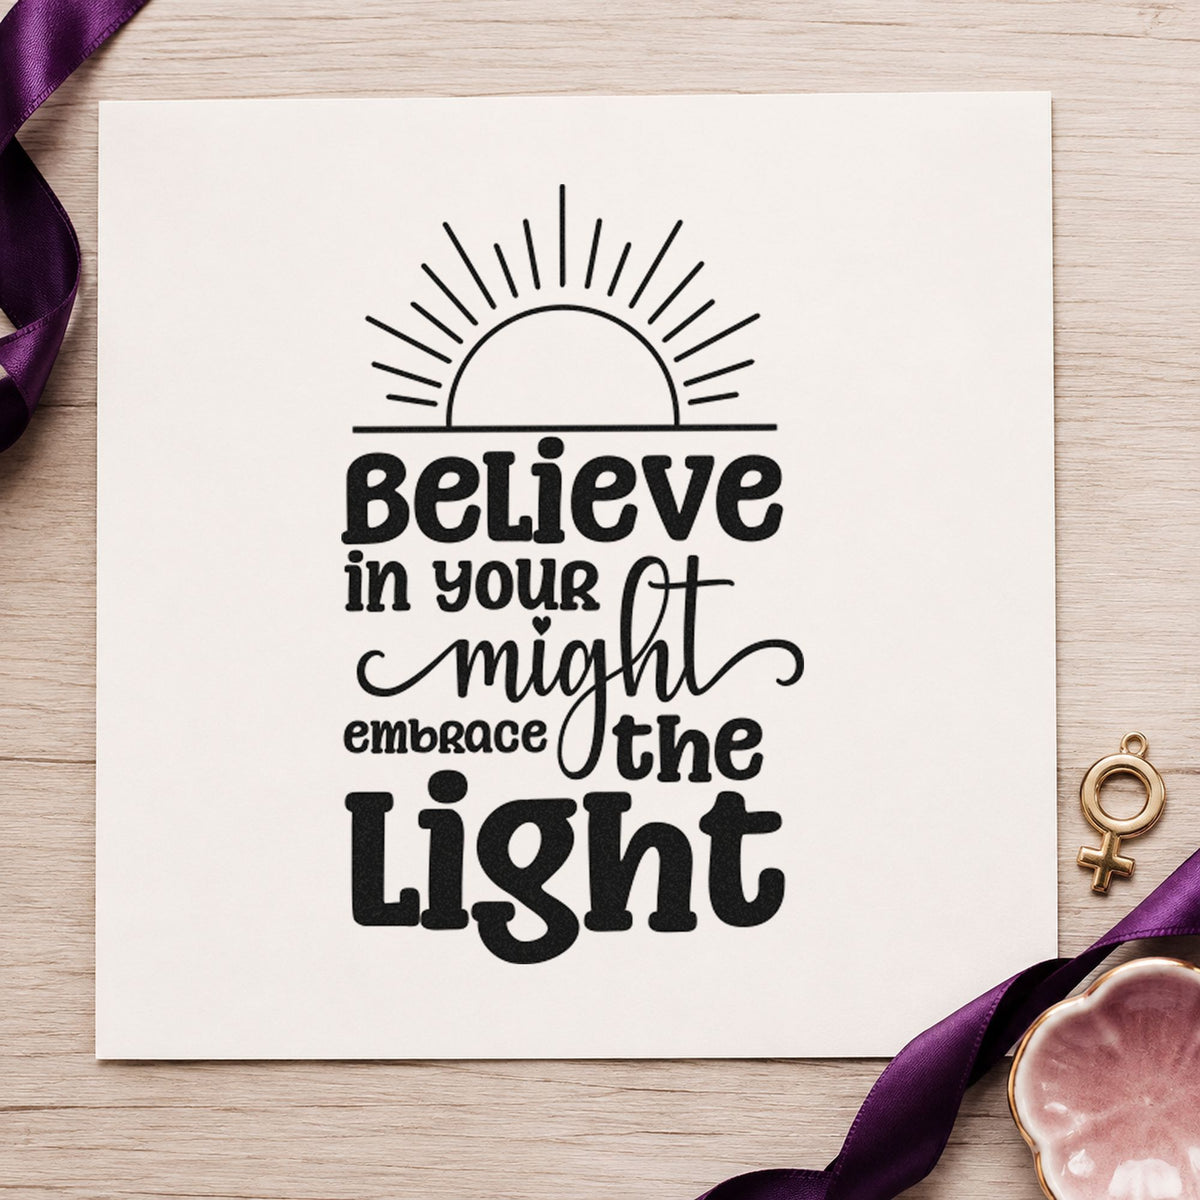 Believe
in your
might
embrace the
Light